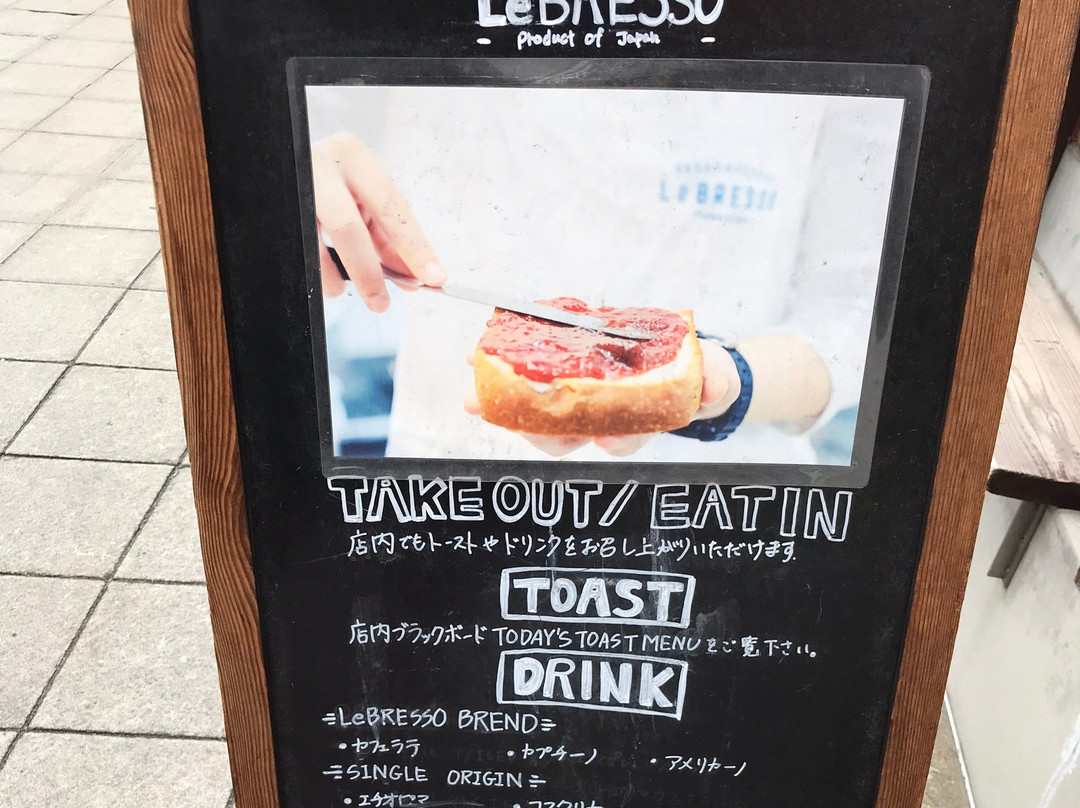 LeBRESSO
- Product of Japan -
LeBRESSO
TAKE OUT/EAT IN
店内でもトーストやドリンクをお召し上がりいただけます。
TOAST
店内ブラックボードTODAY'S TOAST MENUをご覧下さい。
DRINK
=LeBRESSO BREND=
・カフェラテ ・カプチーノ ・アメリカーノ
=SINGLE ORIGIN=
・エチオピア